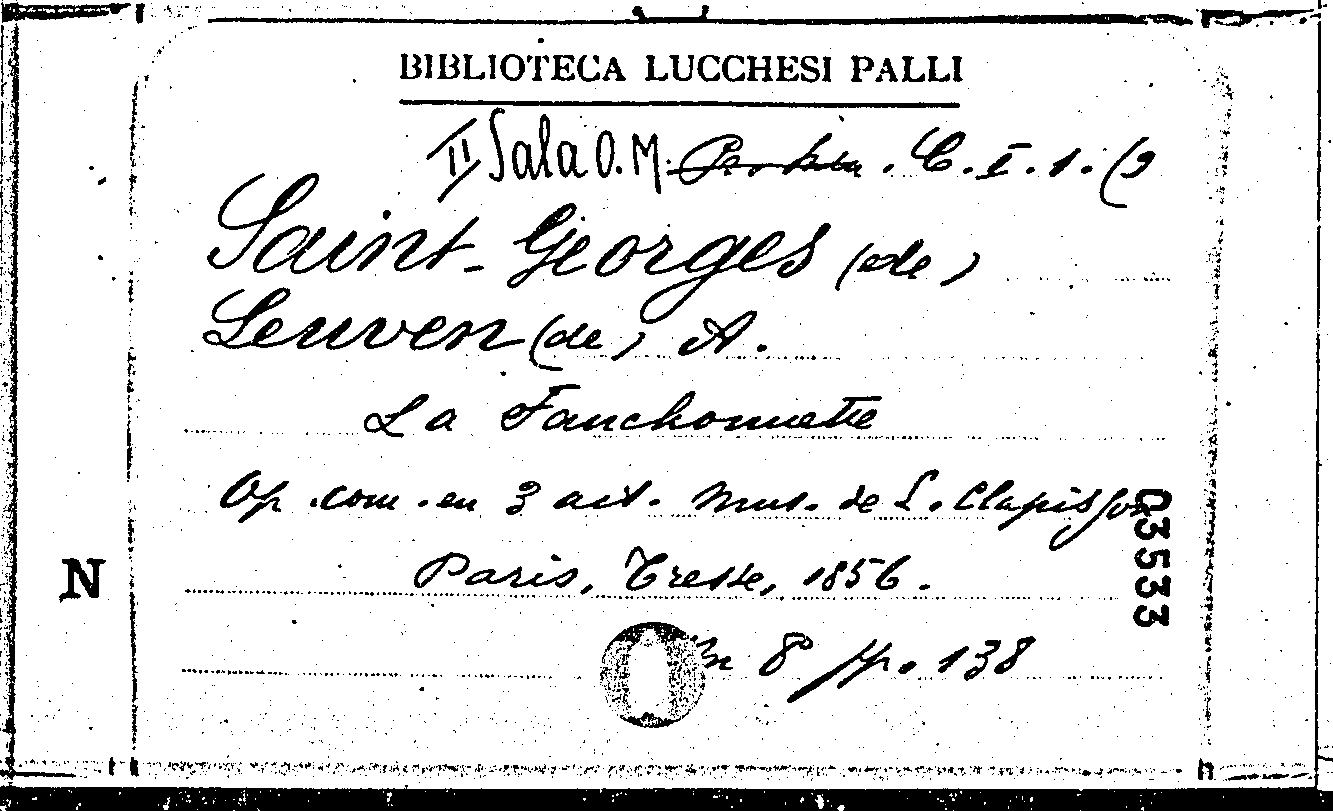 BIBLIOTECA LUCCHESI PALLI
II Sala O. M. C. I. 1. (9
Saint-Georges (de)
Leuven (de) A.
La Fanchonnette
Op. com. en 3 act. Mus. de L. Clapisson
03533
N
Paris, Tresse, 1856.
In 8° pp. 138